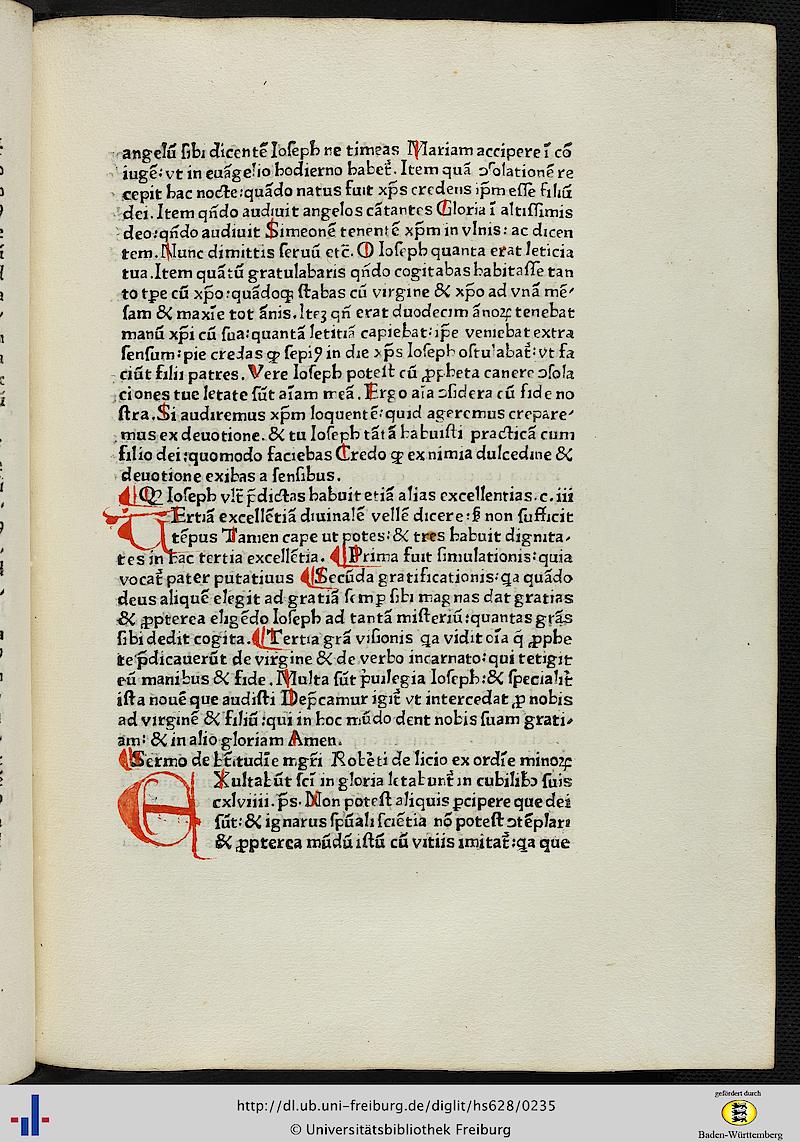 angelũ ſibi dicentẽ Ioſeph ne timeas Mariam accipere ĩ cõ
iugẽ: vt in euãgelio hodierno habet᷑. Item quã ↄſolationẽ re
cepit hac nocte: quãdo natus fuit xp̃s credens ip̃m eſſe filiũ
dei. Item qñdo audiuit angelos cãtantes Gloria ĩ altiſſimis
deo: qñdo audiuit Simeonẽ tenentẽ xp̃m in vlnis: ac dicen
tem. Nunc dimittis ſeruũ etc̃. O Ioſeph quanta erat leticia
tua. Item quãtũ gratulabaris qñdo cogitabas habitaſſe tan
to tp̃e cũ xp̃o: quãdoqꝫ ſtabas cũ virgine & xp̃o ad vnã mẽ⸗
ſam & maxĩe tot ãnis. Iteꝫ qñ erat duodecim ãnoꝝ tenebat
manũ xp̃i cũ ſua: quantã letitiã capiebat: ip̃e veniebat extra
ſenſum: pie credas ꝙ ſepiꝰ in die xp̃s Ioſeph oſculabat᷑: vt fa
ciũt filii patres. Vere Ioſeph poteſt cũ ꝓpheta canere ↄſola
ciones tue letate ſũt aĩam meã. Ergo aĩa ↄſidera cũ fide no
ſtra. Si audiremus xp̃m loquentẽ: quid ageremus crepare⸗
mus ex deuotione. & tu Ioſeph tãtã habuiſti practicã cum
filio dei: quomodo faciebas Credo ꝙ ex nimia dulcedine &
deuotione exibas a ſenſibus.
Qꝙ Ioſeph vlt̃ p̃dictas habuit etiã alias excellentias. c. iii
TErtiã excellẽtiã diuinalẽ vellẽ dicere: ſꝫ non ſufficit
tẽpus Tamen cape ut potes: & tres habuit dignita⸗
tes in hac tertia excellẽtia. Prima fuit ſimulationis: quia
vocat᷑ pater putatiuus Secũda gratificationis: qa quãdo
deus aliquẽ elegit ad gratiã ſemꝑ ſibi magnas dat gratias
& ꝓpterea eligẽdo Ioſeph ad tantã miſteriũ: quantas grãs
ſibi dedit cogita. Tertia grã viſionis qa vidit oĩa q̃ ꝓphe
te p̃dicauerũt de virgine & de verbo incarnato: qui tetigit
eũ manibus & fide. Multa ſũt p̃uilegia Ioſeph: & ſpecialit᷑
iſta nouẽ que audiſti Dep̃camur igit᷑ vt intercedat ꝓ nobis
ad virginẽ & filiũ: qui in hoc mũdo dent nobis ſuam grati⸗
am: & in alio gloriam Amen.
Sermo de bt̃itudĩe mgr̃i Robẽti de licio ex ordĩe minoꝝ
EXultabũt ſcĩ in gloria letabunt᷑ in cubilibꝫ ſuis
cxlviiii. p̃s. Non poteſt aliquis ꝑcipere que dei
ſũt: & ignarus ſpũali ſciẽtia nõ poteſt ↄtẽplari
& ꝓpterea mũdũ iſtũ cũ vitiis imitat᷑: qa que
http://dl.ub.uni-freiburg.de/diglit/hs628/0235
© Universitätsbibliothek Freiburg
gefördert durch
Baden-Württemberg